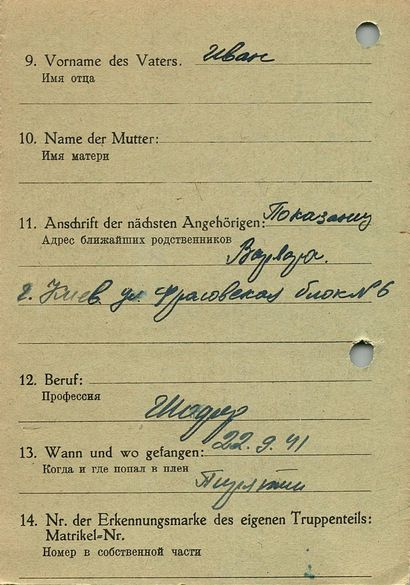 9. Vorname des Vaters. Иван
Имя отца
10. Name der Mutter:
Имя матери
11. Anschrift der nächsten Angehörigen:
Адрес ближайших родственников
г. Киев ул. блок № 6
12. Beruf:
Профессия
13. Wann und wo gefangen: 22.9.41
Когда и где попал в плен
14. Nr. der Erkennungsmarke des eigenen Truppenteils:
Matrikel-Nr.
Номер в собственной части